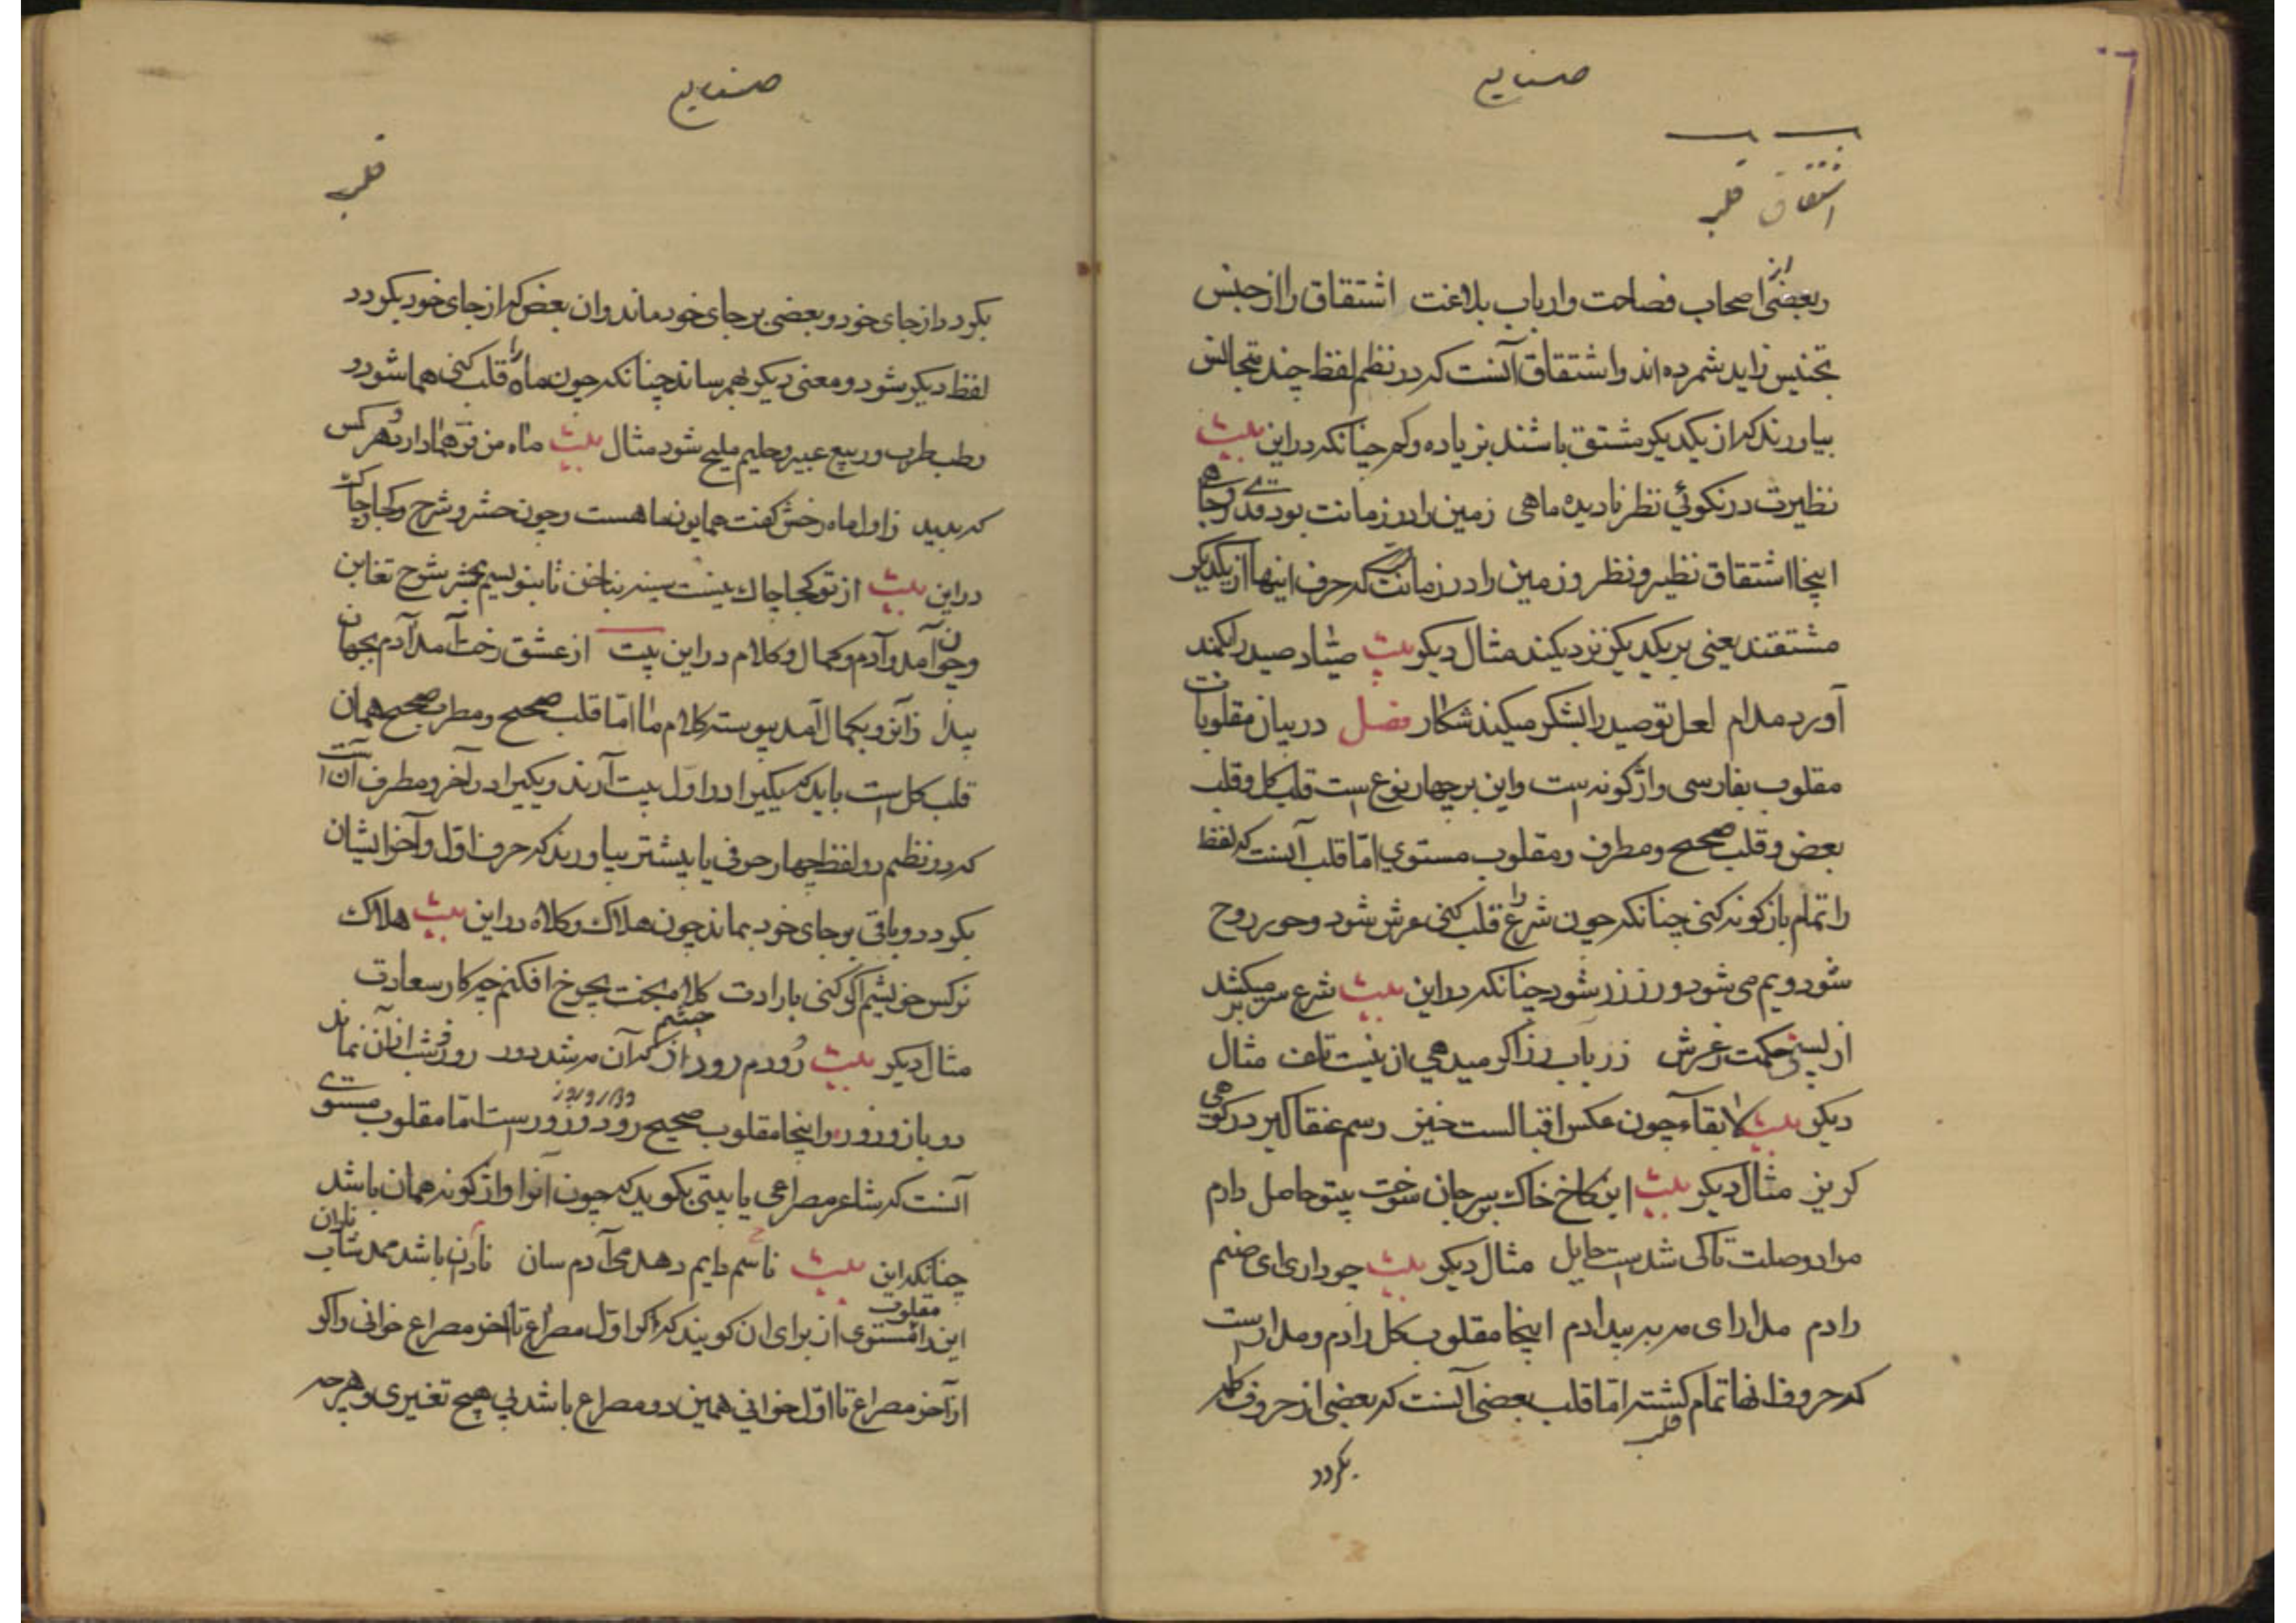 صنایع
اشتقاق قلب
و بعضی از اصحاب فصاحت و ارباب بلاغت اشتقاق را از جنس
تجنیس زاید شمرده اند و اشتقاق آنست که در نظم لفظ چند متجانس
بیاورند که از یکدیکر مشتق باشند بزیاده و کم چنانکه در این بیت
نظیرت در نکوئی نظر نادیده ماهی زمین را در زمانت بود
اینجا اشتقاق نظیر و نظر و زمین را در زمانت که حرف اینها از یکدیکر
مشتقند یعنی بر یکدیکر نزدیکند مثال دیکر بیت صیاد صید را بکمند
آورد مدام لعل تو صید را بشکر میکند شکار فصل در بیان مقلوبات
مقلوب بفارسی واژکونه است و این بر چهار نوع است قلب کل و قلب
بعض و قلب صحیح و مطرف و مقلوب مستوی اما قلب آنست که لفظ
را تمام بازکونه کنی چنانکه چون شرع را قلب کنی عرش شود و حور روح
شود و یم می شود و رزز زر شود چنانکه در این بیت شرع سر میکشد
از حکمت عرش زر باب رز اکر میدهی از نیت تلف مثال
دیکر بیت لابقاء چون عکس اقبالست خیز رسم عنقا کیر در کوهی
کریز مثال دیکر بیت این کاخ خاک بر سر جان سوخت بیتو حاصل دارم
مراد وصلت تا کی شدست حایل مثال دیکر بیت چو داری ای صنم
رادم مدارای مر ببر بیدادم اینجا مقلوب کل رادم و مدارست
که حروف انها تمام کشته اما قلب بعضی آنست که بعضی از حروف کلمه
قلب
بکردد
صنایع
قلب
بکردد از جای خود و بعضی بر جای خود ماند و ان بعض که از جای خود بکردد
لفظ دیکر شود و معنی دیکر بهم رساند چنانکه چون ماه را قلب کنی هما شود و
رطب طرب و ربیع عبیر و حلیم ملیح شود مثال بیت ماه من فر هما دارد و هر کس
که بدید زاول ماه رخش کفت همایون ماهست و چون حشر و شرح و کجا و چاک
در این بیت از تو کجا چاک نیست سینه بناخن تا بنویسیم بحشر شرح تغابن
و چون آمد و آدم و کمال و کلام در این بیت از عشق رخت آمد آدم بجهان
پیدا زآنرو بکمال آمد پیوسته کلام ما اما قلب صحیح و مطرف صحیح همان
قلب کل است باید که یکیرا در اول بیت آرند و یکیرا در آخر و مطرف آن است
که در نظم دو لفظ چهار حرفی یا بیشتر بیاورند که حرف اول و آخر ایشان
بکردد و باقی بر جای خود بماند چون هلاک و کلاه در این بیت هلاک
نرکس خویشم اکر کنی بارادت کلاه بخت بچرخ افکنم چه کار سعادت
مثال دیکر بیت زورم رود از چشم که آن مر شد دور روز و شب از آن نماند
در بازو زور و اینجا مقلوب صحیح رود و زورست اما مقلوب مستوی
آنست که شاعر مصراعی یا بیتی بکوید که چون آنرا واژکونه همان باشد
چنانکه این بیت ناسم دایم دهد می آدم سان نادان باشد مدشاب نادان
این را مقلوب مستوی از برای ان کویند که اکر از اول مصراع تا آخر مصراع خوانی و اکر
از آخر مصراع تا اول خوانی همین دو مصراع باشد بی هیچ تغییری و هر چه